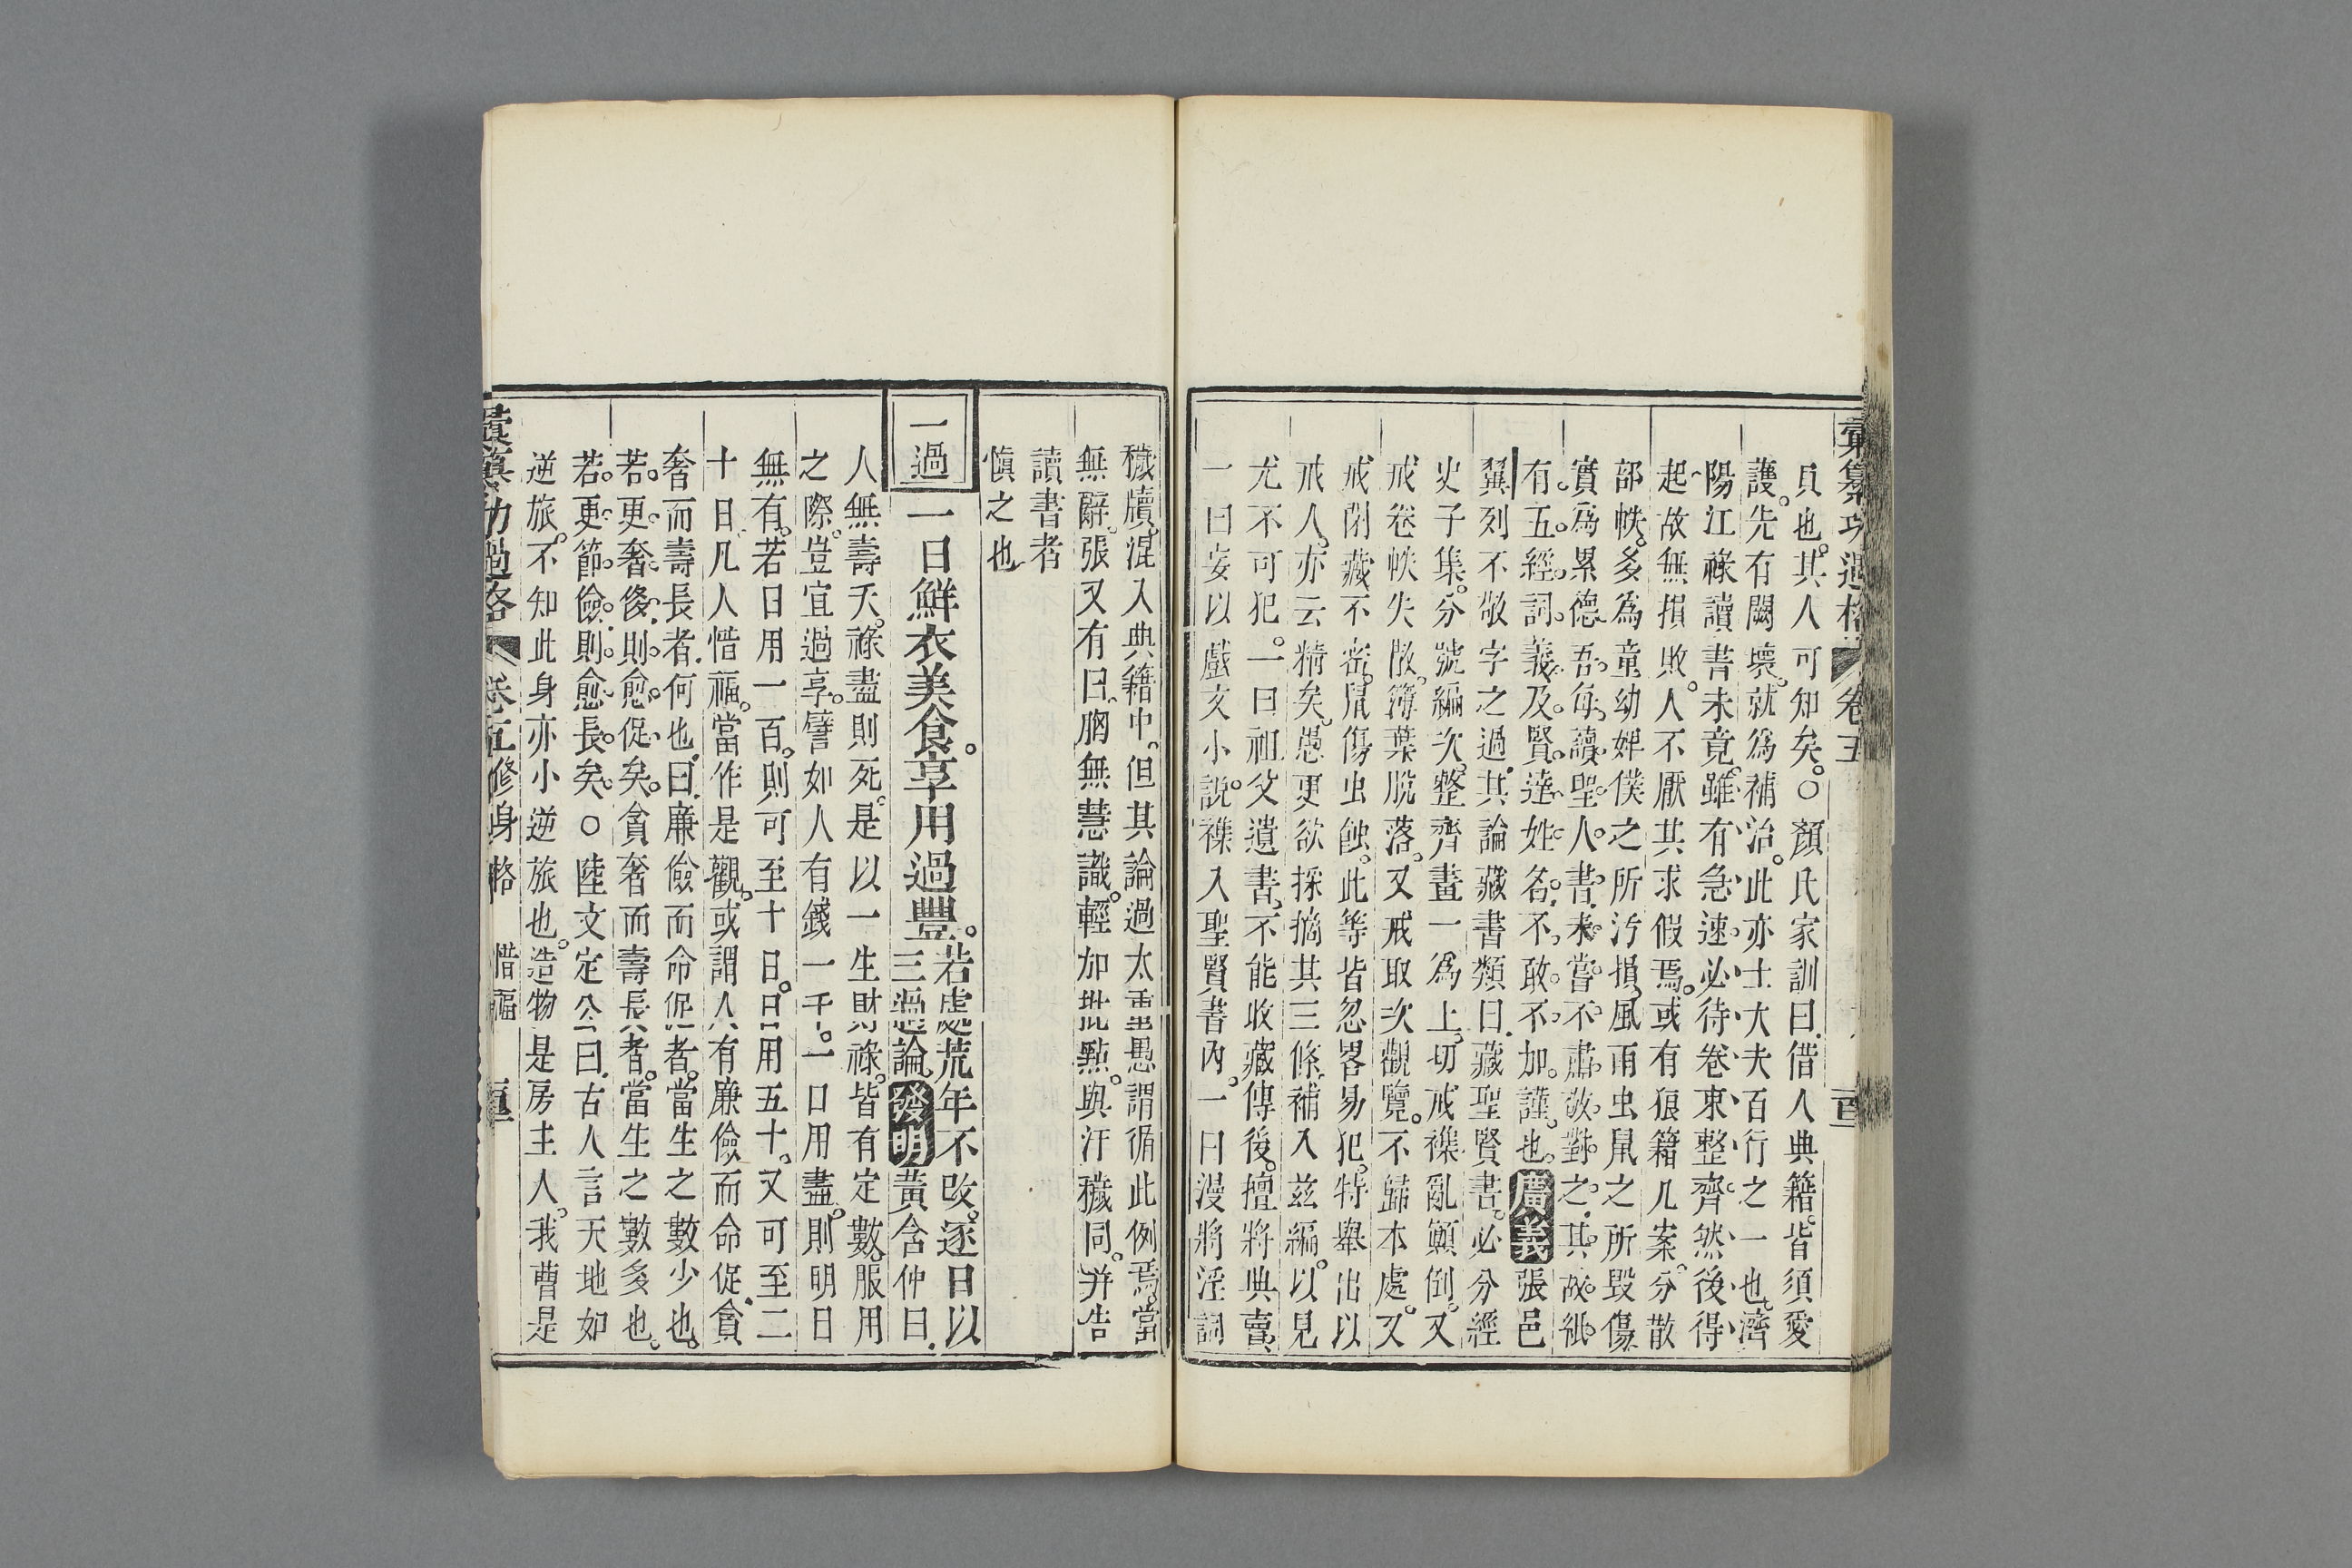 彙纂功過格 卷五
員也。其人可知矣。○顏氏家訓曰。借人典籍。皆須愛
護。先有闕壞。就為補治。此亦士大夫百行之一也。濟
陽江祿讀書未竟。雖有急速。必待卷束整齊。然後得
起。故無損敗。人不厭其求假焉。或有狼籍几案。分散
部帙。多為童幼婢僕之所汚損。風雨虫鼠之所毀傷。
實為累德。吾每讀聖人書。未嘗不肅敬對之。其故紙
有五經詞義。及賢達姓名。不敢不加謹也。廣義張邑
翼列不敬字之過。其論藏書類曰。藏聖賢書。必分經
史子集。分號編次。整齊畫一為上。切戒襍亂顚倒。又
戒卷帙失散。簿葉脫落。又戒取次觀覽。不歸本處。又
戒閉藏不密。鼠傷虫蝕。此等皆忽畧易犯。特舉出以
戒人。亦云精矣。愚更欲採摘其三條。補入兹編。以見
尤不可犯。一曰祖父遺書。不能收藏傳後。擅將典賣。
一曰妄以戲文小說。襍入聖賢書內。一曰漫將淫詞
穢牘。混入典籍中。但其論過太重。愚謂循此例焉。當
無辭。張又有曰。胸無慧識。輕加批點。與汙穢同。并告
讀書者
愼之也
一過 一日鮮衣美食。享用過豐。若處荒年不改。逐日以
三過論。發明黃含仲曰。
人無壽夭。祿盡則死。是以一生財祿。皆有定數。服用
之際。豈宜過享。譬如人有錢一千。一日用盡。則明日
無有。若日用一百。則可至十日。日用五十。又可至二
十日。凡人惜福。當作是觀。或謂人有廉儉而命促。貪
奢而壽長者。何也。曰。廉儉而命促者。當生之數少也。
若更奢侈。則愈促矣。貪奢而壽長者。當生之數多也。
若更節儉。則愈長矣。○陸文定公曰。古人言天地如
逆旅。不知此身亦小逆旅也。造物是房主人。我曹是
彙纂功過格 卷五 修身格 惜福